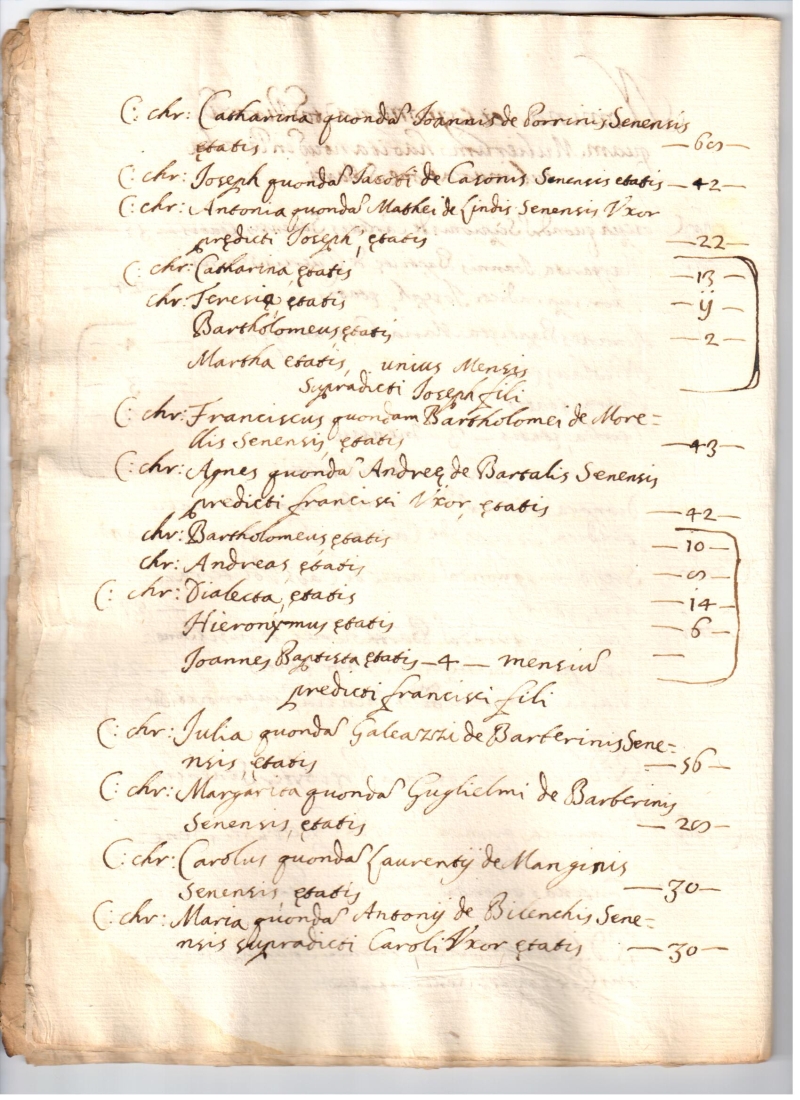 C: chr: Catharina quonda Joannis de Porrinis Senensis
ętatis — 60 —
C: chr: Joseph quonda Jacobi de Casonis Senensis etatis — 42 —
C: chr: Antonia quonda Mathei de Lindis Senensis Vxor
prędicti Joseph, ętatis — 22 —
C: chr: Catharina, ętatis — 13 —
chr: Teresia, ętatis — ij —
Bartholomeus ętatis — 2 —
Martha etatis, unius Mensis
supradicti Joseph fili
C: chr: Franciscus quondam Bartholomei de More=
llis Senensis, ętatis — 43 —
C: chr: Agnes quonda Andreę de Bartalis Senensis
predicti francisci Vxor, ętatis — 42 —
chr: Bartholomeus ętatis — 10 —
chr: Andreas, ętatis
C: chr: Dialecta, ętatis — 14 —
Hieronymus ętatis — 6 —
Joannes Baptista ętatis — 4 — mensiu —
predicti francisci fili
C: chr: Julia quonda Galeazzi de Barberinis Sene=
nsis, ętatis — 56 —
C: chr: Margarita quonda Guglielmi de Barberinis
Senensis, ętatis
C: chr: Carolus quonda Laurentij de Manginis
Senensis ętatis — 30 —
C: chr: Maria quonda Antonij de Bilenchis Sene=
nsis supradicti Caroli Vxor, ętatis — 30 —